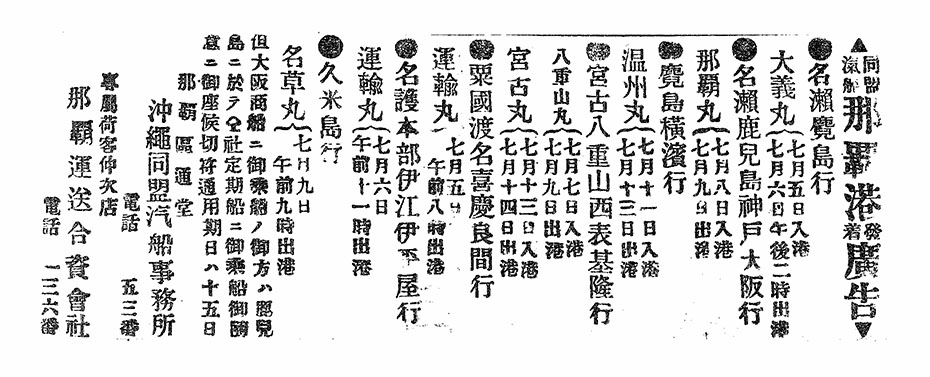 ▲同盟汽船那覇港發着廣告▼
●名瀬鹿島行
大義丸 七月五日入港
七月六日午後二時出港
●名瀬鹿兒島神戸大阪行
那覇丸 七月八日入港
七月九日出港
●鹿島横濱行
温州丸 七月十一日入港
七月十三日出港
●宮古八重山西表基隆行
八重山丸 七月七日入港
七月九日出港
宮古丸 七月十三日入港
七月十四日出港
●粟國渡名喜慶良間行
運輸丸 七月五日
午前八時出港
●名護本部伊江伊平屋行
運輸丸 七月六日
午前十一時出港
●久米島行
名草丸 七月九日
午前九時出港
但大阪商船ニ御乗船ノ御方ハ鹿兒
島ニ於テ仝社定期船ニ御乗船御随
意ニ御座候切符通用期日ハ十五日
那覇區通堂
沖繩同盟汽船事務所
電話 五三番
專屬荷客仲次店
那覇運送合資會社
電話 一二六番